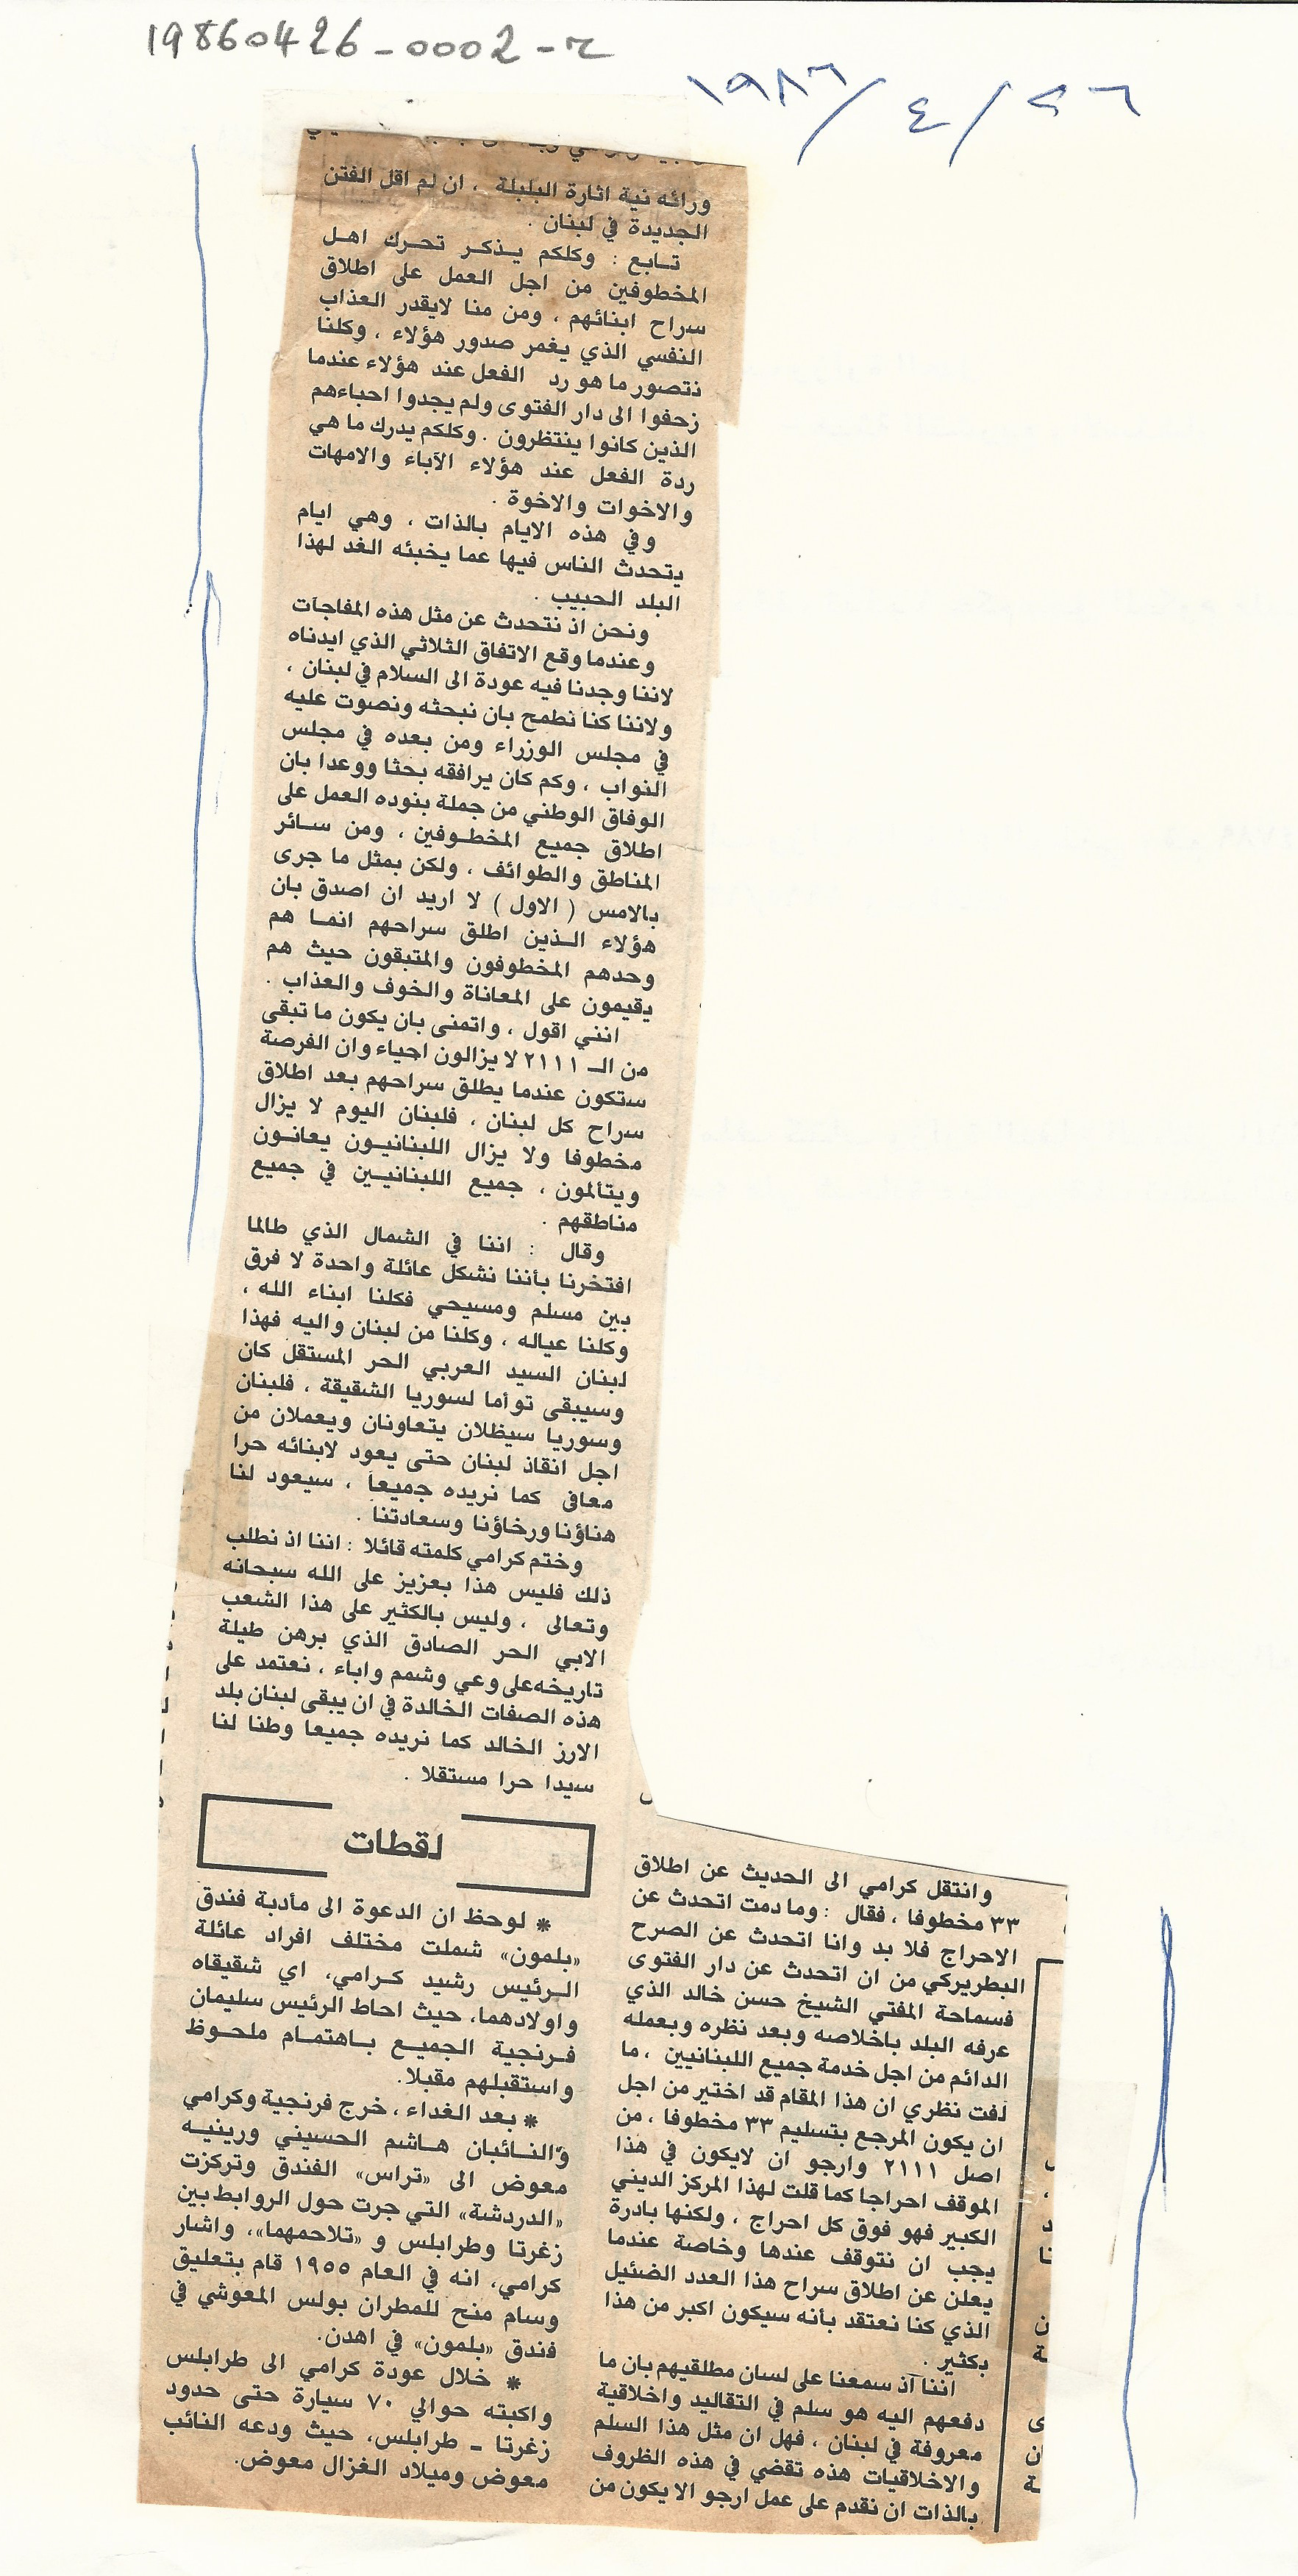 19860426-0002-ح
١٩٨٦/٤/٢٦
وانتقل كرامي الى الحديث عن اطلاق
٣٣ مخطوفا ، فقال : وما دمت اتحدث عن
الاحراج فلا بد وانا اتحدث عن الصرح
البطريركي من ان اتحدث عن دار الفتوى
فسماحة المفتي الشيخ حسن خالد الذي
عرفه البلد باخلاصه وبعد نظره وبعمله
الدائم من اجل خدمة جميع اللبنانيين ، ما
لفت نظري ان هذا المقام قد اختير من اجل
ان يكون المرجع بتسليم ٣٣ مخطوفا ، من
اصل ٢١١١ وارجو ان لايكون في هذا
الموقف احراجا كما قلت لهذا المركز الديني
الكبير فهو فوق كل احراج ، ولكنها بادرة
يجب ان نتوقف عندها وخاصة عندما
يعلن عن اطلاق سراح هذا العدد الضئيل
الذي كنا نعتقد بأنه سيكون اكبر من هذا
بكثير .
اننا آذ سمعنا على لسان مطلقيهم بان ما
دفعهم اليه هو سلم في التقاليد واخلاقية
معروفة في لبنان ، فهل ان مثل هذا السلم
والاخلاقيات هذه تقضي في هذه الظروف
بالذات ان نقدم على عمل ارجو الا يكون من
ورائه نية اثارة البلبلة ، ان لم اقل الفتن
الجديدة في لبنان .
تابع : وكلكم يذكر تحرك اهل
المخطوفين من اجل العمل على اطلاق
سراح ابنائهم ، ومن منا لايقدر العذاب
النفسي الذي يغمر صدور هؤلاء ، وكلنا
نتصور ما هو رد الفعل عند هؤلاء عندما
زحفوا الى دار الفتوى ولم يجدوا احباءهم
الذين كانوا ينتظرون . وكلكم يدرك ما هي
ردة الفعل عند هؤلاء الآباء والامهات
والاخوات والاخوة .
وفي هذه الايام بالذات ، وهي ايام
يتحدث الناس فيها عما يخبئه الغد لهذا
البلد الحبيب .
ونحن اذ نتحدث عن مثل هذه المفاجآت
وعندما وقع الاتفاق الثلاثي الذي ايدناه
لاننا وجدنا فيه عودة الى السلام في لبنان ،
ولاننا كنا نطمح بان نبحثه ونصوت عليه
في مجلس الوزراء ومن بعده في مجلس
النواب ، وكم كان يرافقه بحثا ووعدا بان
الوفاق الوطني من جملة بنوده العمل على
اطلاق جميع المخطوفين ، ومن سائر
المناطق والطوائف ، ولكن بمثل ما جرى
بالامس ( الاول ) لا اريد ان اصدق بان
هؤلاء الذين اطلق سراحهم انما هم
وحدهم المخطوفون والمتبقون حيث هم
يقيمون على المعاناة والخوف والعذاب .
انني اقول ، واتمنى بان يكون ما تبقى
من الـ ٢١١١ لا يزالون احياء وان الفرصة
ستكون عندما يطلق سراحهم بعد اطلاق
سراح كل لبنان ، فلبنان اليوم لا يزال
مخطوفا ولا يزال اللبنانيون يعانون
ويتألمون ، جميع اللبنانيين في جميع
مناطقهم .
وقال : اننا في الشمال الذي طالما
افتخرنا بأننا نشكل عائلة واحدة لا فرق
بين مسلم ومسيحي فكلنا ابناء الله ،
وكلنا عياله ، وكلنا من لبنان واليه فهذا
لبنان السيد العربي الحر المستقل كان
وسيبقى توأما لسوريا الشقيقة ، فلبنان
وسوريا سيظلان يتعاونان ويعملان من
اجل انقاذ لبنان حتى يعود لابنائه حرا
معافى كما نريده جميعا ، سيعود لنا
هناؤنا ورخاؤنا وسعادتنا .
وختم كرامي كلمته قائلا : اننا اذ نطلب
ذلك فليس هذا بعزيز على الله سبحانه
وتعالى ، وليس بالكثير على هذا الشعب
الابي الحر الصادق الذي برهن طيلة
تاريخه على وعي وشمم واباء ، نعتمد على
هذه الصفات الخالدة في ان يبقى لبنان بلد
الارز الخالد كما نريده جميعا وطنا لنا
سيدا حرا مستقلا .
لقطات
* لوحظ ان الدعوة الى مأدبة فندق
«بلمون» شملت مختلف افراد عائلة
الرئيس رشيد كرامي، اي شقيقاه
واولادهما، حيث احاط الرئيس سليمان
فرنجية الجميع باهتمام ملحوظ
واستقبلهم مقبلا.
* بعد الغداء ، خرج فرنجية وكرامي
والنائبان هاشم الحسيني ورينيه
معوض الى «تراس» الفندق وتركزت
«الدردشة» التي جرت حول الروابط بين
زغرتا وطرابلس و «تلاحمهما»، واشار
كرامي، انه في العام ١٩٥٥ قام بتعليق
وسام منح للمطران بولس المعوشي في
فندق «بلمون» في اهدن.
* خلال عودة كرامي الى طرابلس
واكبته حوالي ٧٠ سيارة حتى حدود
زغرتا - طرابلس، حيث ودعه النائب
معوض وميلاد الغزال معوض.